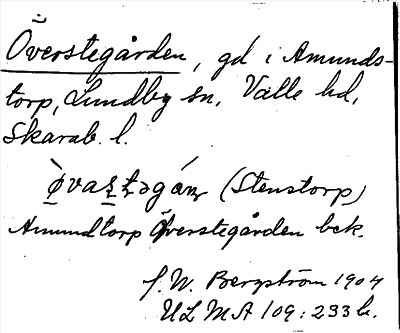 Överstegården, gd i Amunds-
torp, Lundby sn, Valle hd,
Skarab. l.
(Stenstorp)
Amundtorp Öfverstegården bek.
J. W. Bergström 1904
ULMA 109:233 b.